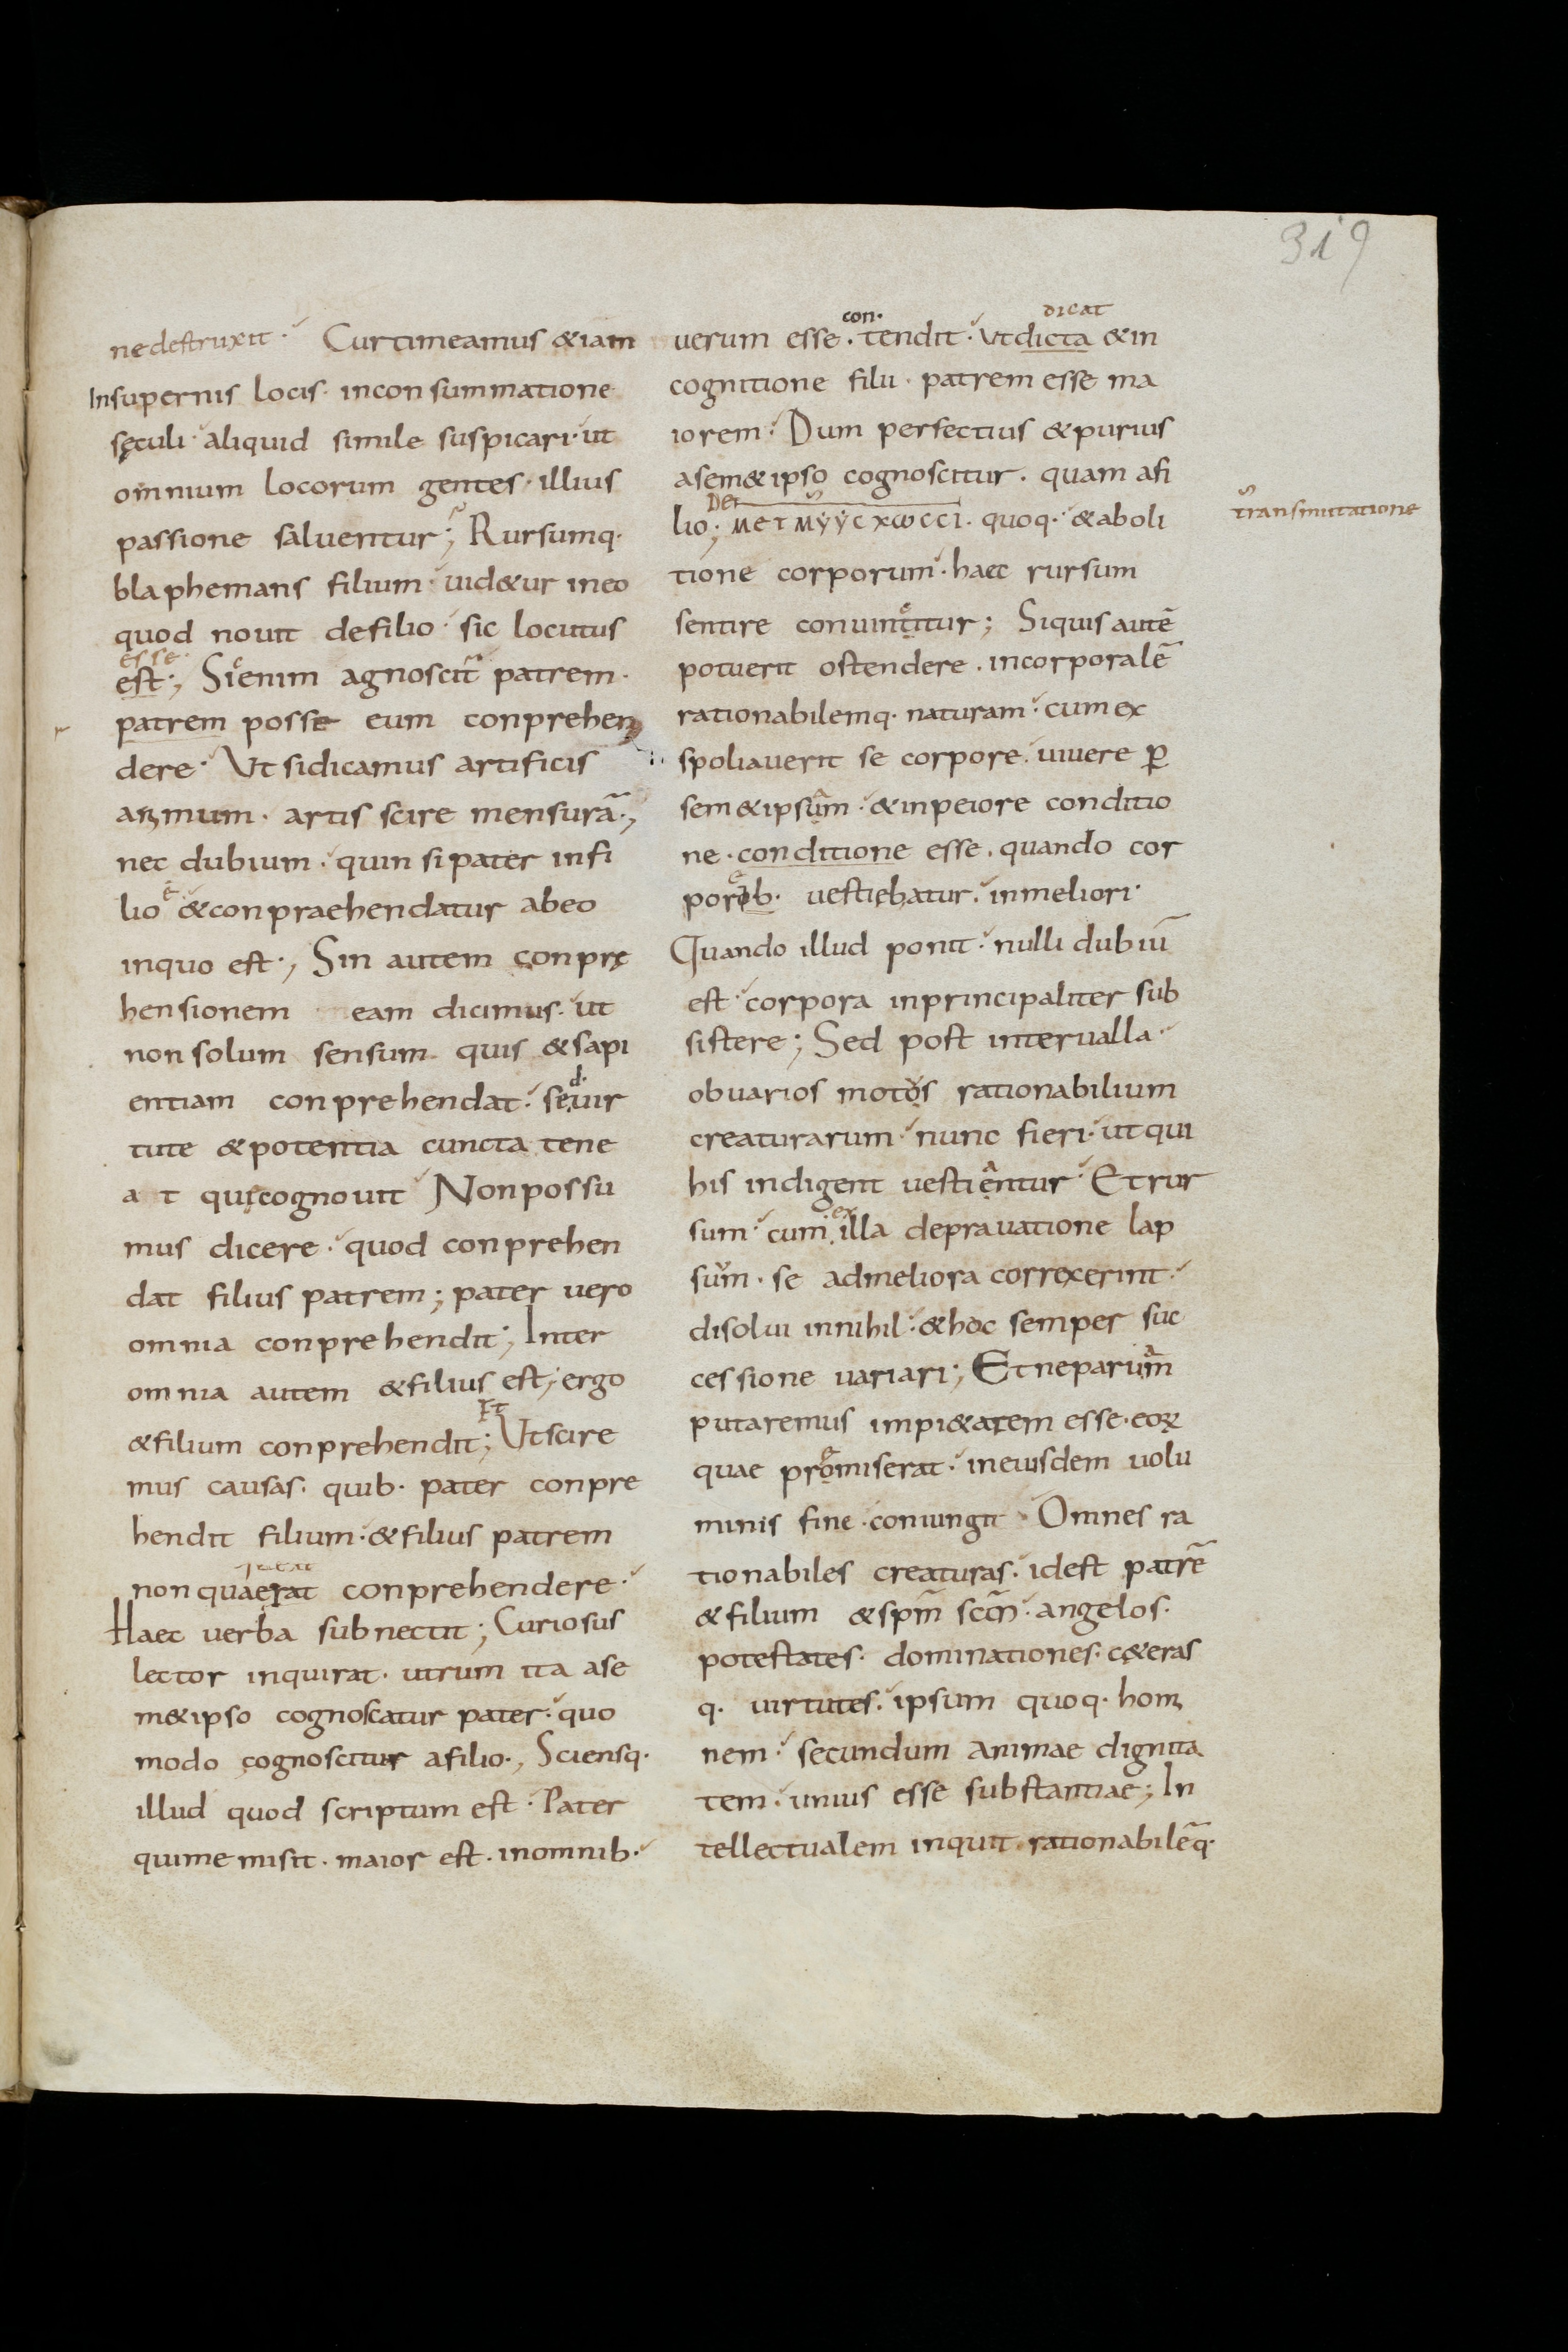 319
nedestruxit · Curtimeamus &iam
Insupernis locis · inconsummatione
sęculi · aliquid simile suspicari · ut
omnium locorum gentes · illius
passione saluentur ; Rursumq·
blaphemans filium · uid&ur ineo
quod nouit defilio · sic locutus
esse
est ·, Sienim agnoscit patrem ·
patrem posse eum conprehen
dere · Ut sidicamus artificis
animum · artis scire mensurā ·,
nec dubium · quin si pater infi
e
lio &conpraehendatur abeo
inquo est ·, Sin autem conprę
hensionem eam dicimus · ut
non solum sensum quis &sapi
d·
entiam conprehendat · seuir
tute &potentia cuncta tene
a t quicognouit Nonpossu
mus dicere · quod conprehen
dat filius patrem ; pater uero
omnia conprehendit ; Inter
omnia autem &filius est ; ergo
Et
&filium conprehendit ; Utscire
mus causas · quib· pater conpre
hendit filium · &filius patrem
nonquaerat conprehendere ·
Haec uerba subnectit ; Curiosus
lector inquirat · utrum ita ase
m&ipso cognoscatur pater · quo
modo cognoscitur afilio ·, Sciensq·
illud quod scriptum est · Pater
quime misit · maior est · inomnib·
con· dicat
uerum esse · tendit · Ut dicta &in
cognitione filii · patrem esse ma
iorem · Dum perfectius &purius
asem&ipso cognoscitur · quam afi
De
lio ; ΜΕΤΜΥΥC ΧωCCΙ · quoq· &aboli
transmutatione
tione corporum · haec rursum
e
sentire conuintitur ; Siquis autē
potuerit ostendere · incorporalē
rationabilemq· naturam · cum ex
spoliauerit se corpore · uiuere ꝑ
sem&ipsum · &inpeiore conditio
ne · conditione esse · quando cor
porib· uestiebatur · inmeliori ·
Quando illud ponit · nulli dubiū
est · corpora inprincipaliter sub
sistere ; Sed post interualla ·
obuarios motos rationabilium
creaturarum · nunc fieri · ut qui
his indigent uestientur · Et rur
ex
sum · cum illa deprauatione lap
sum · se admeliora correxerint ·
disolui innihil · &hoc semper suc
cessione uariari ; Et neparum
putaremus impi&atem esse · eoꝝ
e
quae promiserat · ineiusdem uolu
minis fine · coniungit · Omnes ra
tionabiles creaturas · idest patrē
&filium &spm̄ scm̄ · angelos ·
potestates · dominationes · c&eras
q· uirtutes · ipsum quoq· homi
nem · secundum animae dignita
tem · unius esse substantiae ; In
tellectualem inquit rationabilēq·